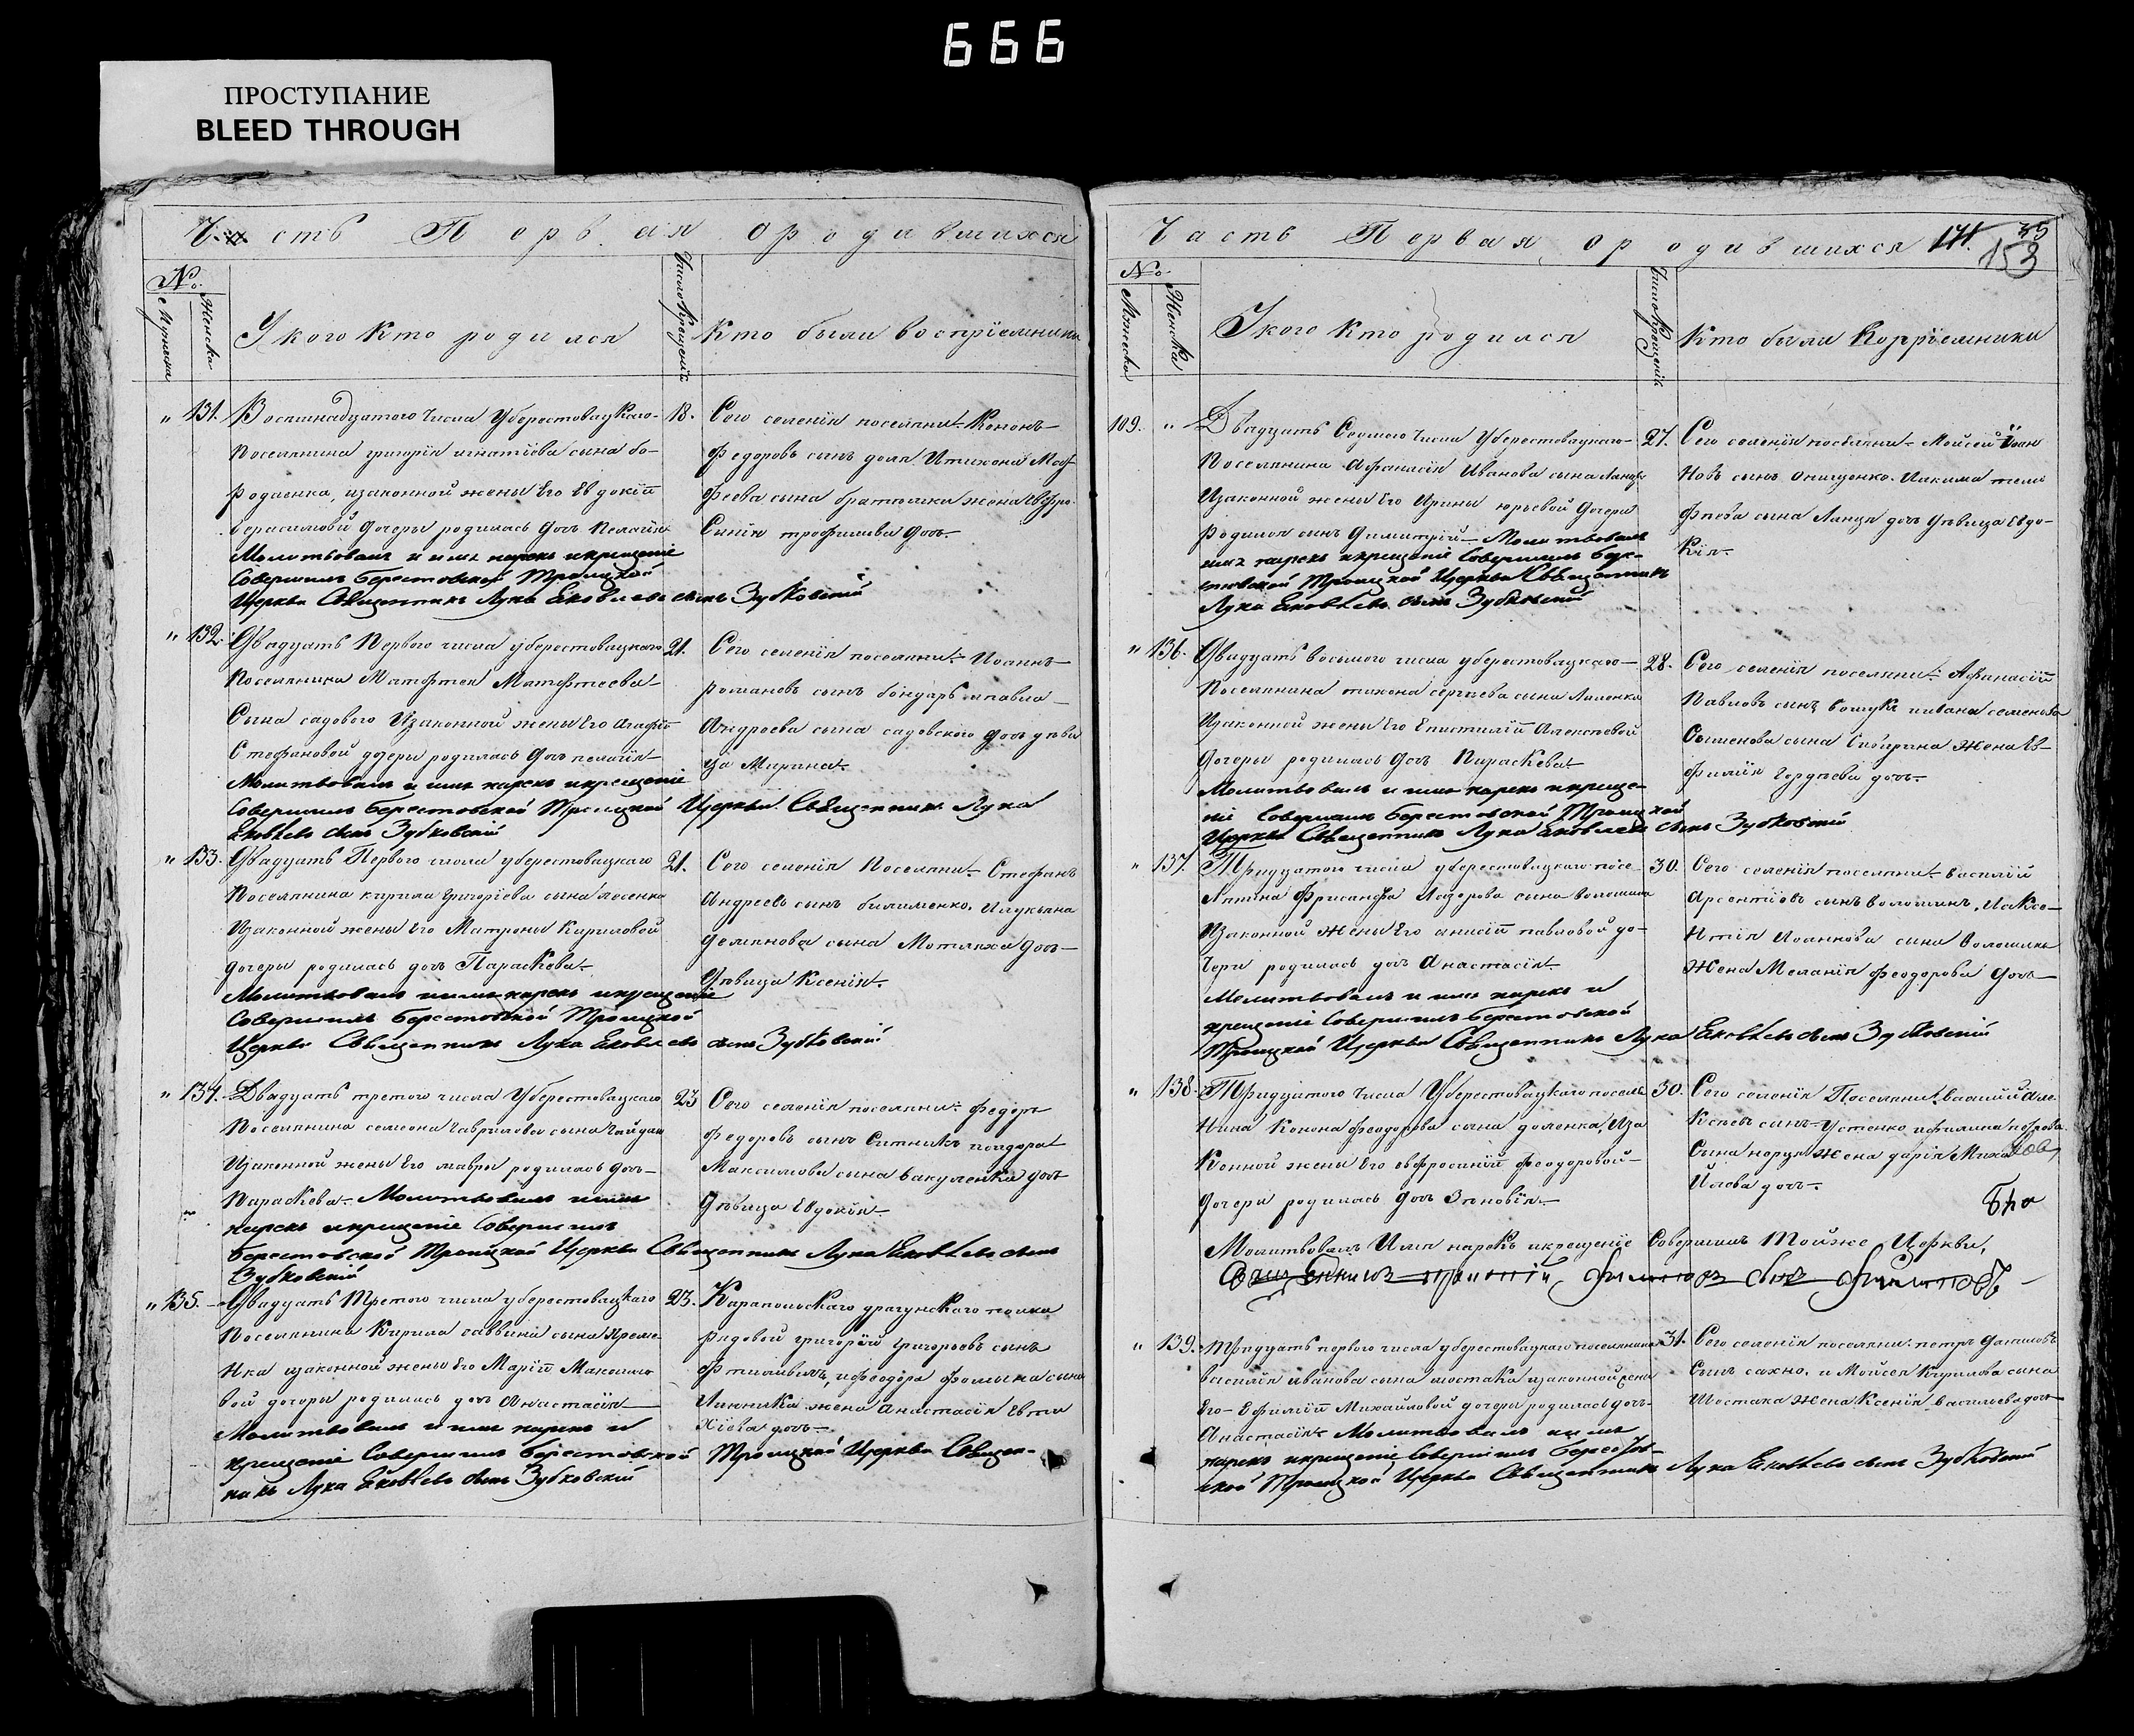 666
ПРОСТУПАНИЕ
BLEED THROUGH
Часть Первая о родившихся
№
Мужеска
Женска
У кого кто родился
Число Крещенія
Кто были воспріемники
" 131. Восемнадцатого числа Уберестовацкаго
поселянина григорія игнатіева сына бо-
родаенка, изаконной жены Его Евдокіи
герасимовой дочеры родилась дочь Пелагія
Молитвовалъ и имя нарекъ икрещеніе
Совершилъ Берестовской Троицкой
Церкви Священникъ Лука Яковлевъ сынъ Зубковскій
18. Сего селенія поселяни Кононъ
Федоровъ сынъ доля Итихона Мат-
феева сына жена Евфро-
синія трофимова дочь
" 132. Двадцать Первого числа уберестовацкаго
Поселянина Матфтея Матфтеева
Сына садового Изаконной жены Его Агафіи
Стефановой дочеры родилась дочь пелагія
Молитвовалъ и имя нарекъ икрещеніе
Совершилъ Берестовской Троицкой Церкви Священникъ Лука
Яковлевъ сынъ Зубковскій
21. Сего селенія поселяни Иоаннъ
романовъ сынъ бондарь ипавла
Андреева сына садовского дочь дѣви
ца Марина
" 133. Двадцать Первого числа уберестовацкаго
Поселянина кирила григоріева сына лесенка
Изаконной жены Его Матроны Кириловой
дочеры родилась дочь Параскева
Молитвовалъ иимя нарекъ икрещеніе
Совершилъ Берестовской Троицкой
Церкви Священникъ Лука Яковлевъ сынъ Зубковскій
21. Сего селенія Поселяни Стефанъ
Андреевъ сынъ билименко, Илукьяна
демянова сына Мотляха дочь
Дѣвица Ксенія
" 134. Двадцать третого числа Уберестовацкаго
Поселянина семеона гаврилова сына гайдаш
Изаконной жены Его мавры родилась дочь
Параскева Молитвовалъ иимя
нарекъ икрещеніе Совершилъ
Берестовской Троицкой Церкви Священникъ Лука Яковлевъ сынъ
Зубковскій
23 Сего селенія поселяни федоръ
федоровъ сынъ Ситникъ
Максимова сына вакуленка дочь
Дѣвица Евдокія
" 135. Двадцать Третого числа уберестовацкаго
Поселянина Кирила саввина сына яреме
нка изаконной жены Его Маріи Максимо
вой дочеры родилась дочь Анастасія
Молитвовалъ и имя нарекъ и
крещеніе Совершилъ Берестовской Троицкой Церкви Священ-
никъ Лука Яковлевъ сынъ Зубковскій
23. драгунского полка
рядовой григорій григорьевъ сынъ
ифеодора сына
жена Анастасія Евти
хіева дочь
Часть Первая о родившихся 171. 35
153
№
Мужеска
Женска
У кого кто родился
Число Крещенія
Кто были воспріемники
109. " Двадцать Седмого числа Уберестовацкаго
Поселянина Афанасія Иванова сына
Изаконной жены Его Ирины юрьевой дочери
родился сынъ Димитрій Молитвовалъ
имя нарекъ икрещеніе Совершилъ Бере-
стовской Троицкой Церкви Священникъ
Лука Яковлевъ сынъ Зубковскій
27. Сего селенія поселяни Мойсей Иоан
новъ сынъ онищенко. Иакима тимо
феева сына дочь дѣвица Евдо-
кія
" 136. Двадцать восьмого числа уберестовацкаго
Поселянина тихона сергѣева сына
Изаконной жены Его Епистиміи Алексѣевой
дочеры родилась дочь Параскева
Молитвовалъ и имя нарекъ икреще-
ніе Совершилъ Берестовской Троицкой
Церкви Священникъ Лука Яковлевъ сынъ Зубковскій
28. Сего селенія поселяни Афанасій
Павловъ сынъ ивана семенова
сына жена Ев-
фимія гордѣева дочь
" 137. Тридцатого числа уберестовацкаго посе
лянина Лазорева сына волошина
Изаконной жены Его анисіи павловой до-
чери родилась дочь Анастасія
Молитвовалъ и имя нарекъ и
крещеніе Совершилъ Берестовской
Троицкой Церкви Священникъ Лука Яковлевъ сынъ Зубковскій
30. Сего селенія поселяни василій
Арсентіовъ сынъ волошинъ, Иаксе-
нтія Иоаннова сына волошина
Жена Меланія Феодорова дочь
" 138. Тридцатого числа Уберестовацкаго поселя
нина Конона Феодорова сына доленка, Иза
конной жены Его евфросиніи феодоровой
дочери родилась дочь Зѣновія
Молитвовалъ Имя нарекъ икрещеніе Совершилъ Тойже Церкви,
Священникъ
30. Сего селенія Поселяни василій Але
ксѣевъ сынъ Устенко
сына жена дарія Миха
йлева дочь
" 139. Тридцать первого числа уберестовацкаго поселянина
василія иванова сына шостака изаконной жены
Его Ефиміи Михайловой дочеры родилась дочь
Анастасія Молитвовалъ имя
нарекъ икрещеніе Совершилъ Берестов-
ской Троицкой Церкви Священникъ Лука Яковлевъ сынъ Зубковскій
31. Сего селенія поселяни петръ даниловъ
Сынъ сахно, и Мойсея Кирилова сына
Шостака жена Ксенія васильева дочь